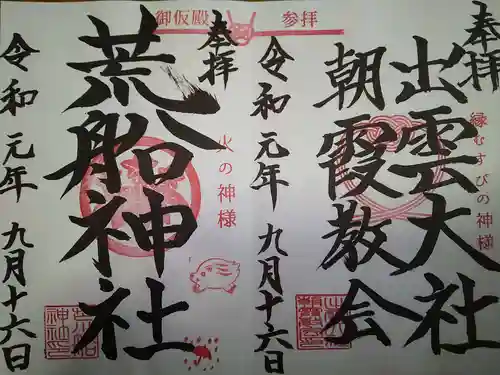 奉拝
縁むすびの神様
出雲大社
朝霞教会
令和元年 九月十六日
御仮殿 参拝
奉拝
火の神様
荒船神社
令和元年 九月十六日